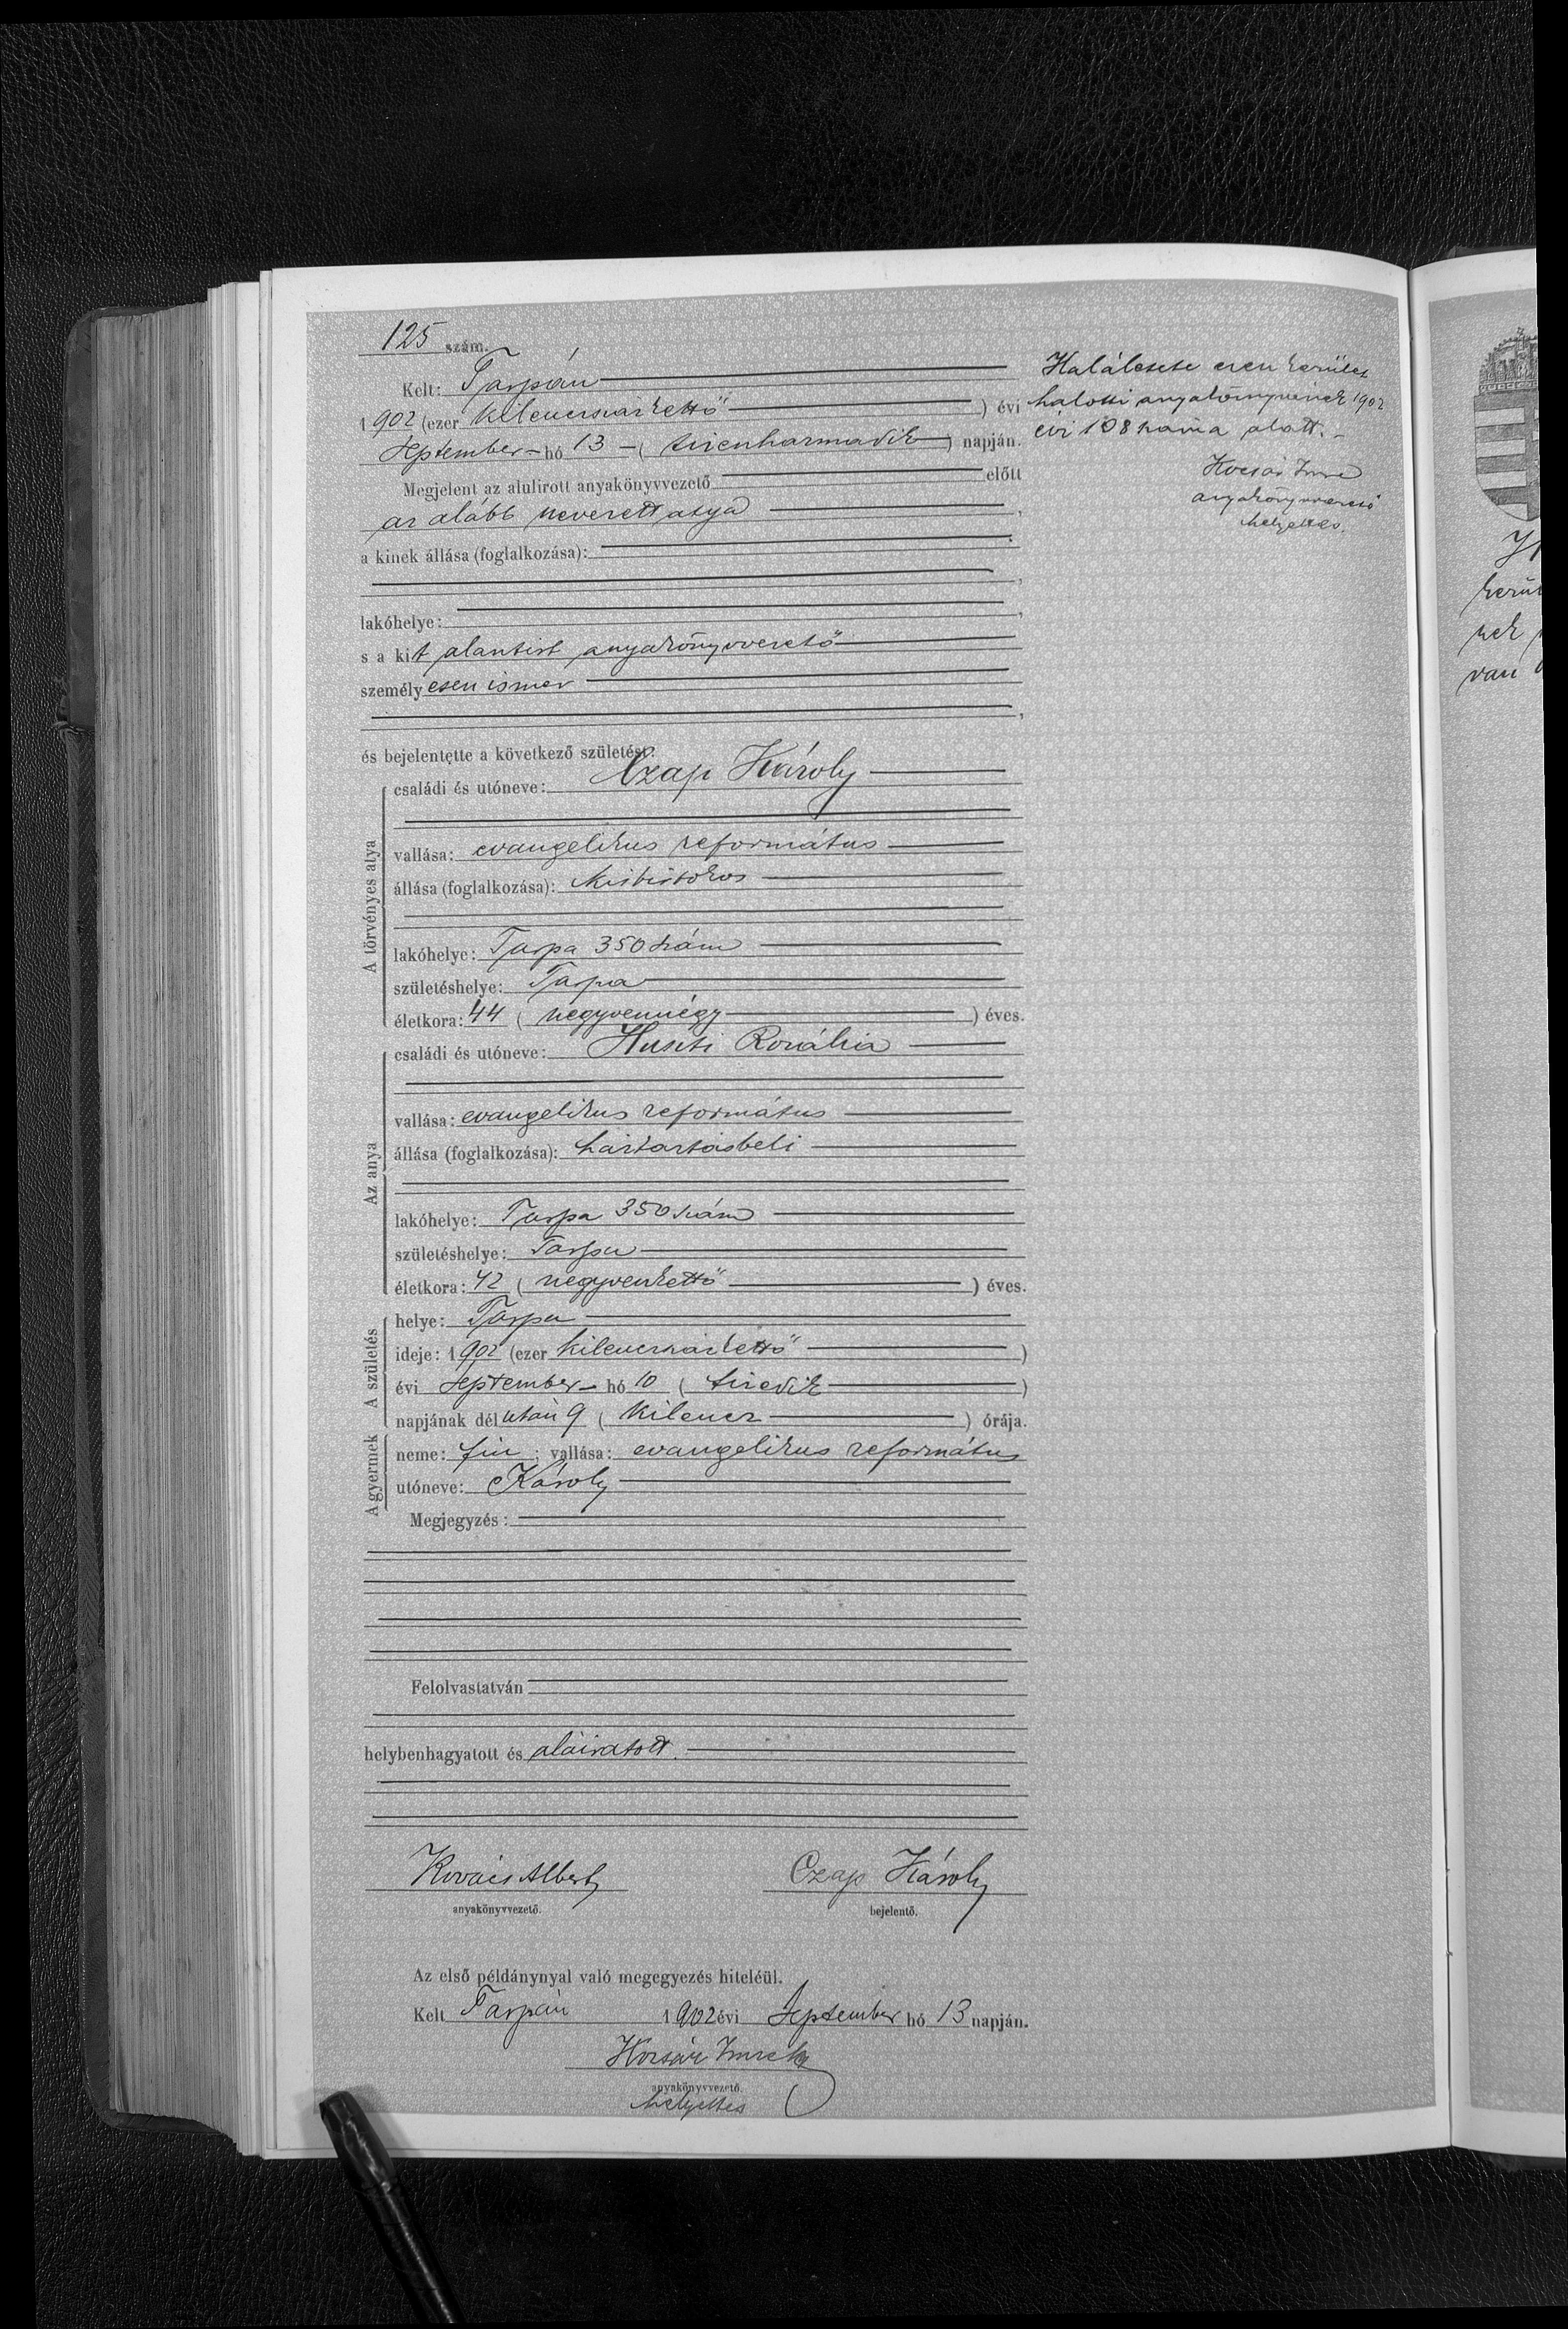 125 szám.
Kelt: Tarpán
1902 (ezer kilenczszázkettő) évi
September hó 13 (tizenharmadik) napján.
Megjelent az alulirott anyakönyvvezető előtt
az alább nevezett atya,
a kinek állása (foglalkozása):
lakóhelye:
s a kit alantirt anyakönyvvezető
személyesen ismer
és bejelentette a következő születést:
A törvényes atya
családi és utóneve: Czap Károly
vallása: evangelikus református
állása (foglalkozása): kisbirtokos
lakóhelye: Tarpa 350 szám
születéshelye: Tarpa
életkora: 44 (negyvennégy) éves.
Az anya
családi és utóneve: Huszti Rozália
vallása: evangelikus református
állása (foglalkozása): háztartásbeli
lakóhelye: Tarpa 350 szám
születéshelye: Tarpa
életkora: 42 (negyvenkettő) éves.
A születés
helye: Tarpa
ideje: 1902 (ezer kilenczszázkettő)
évi September hó 10 (tizedik)
napjának délután 9 (kilencz) órája.
A gyermek
neme: fiu; vallása: evangelikus református
utóneve: Károly
Megjegyzés:
Felolvastatván
helybenhagyatott és aláiratott.
Kovács Albert
anyakönyvvezető.
Czap Károly
bejelentő.
Az első példánynyal való megegyezés hiteléül.
Kelt Tarpán 1902 évi September hó 13 napján.
Kocsár Imre
anyakönyvvezető.
helyettes
Halálesete ezen kerület
halotti anyakönyvének 1902
évi 108 száma alatt.
Kocsár Imre
anyakönyvvezető
helyettes.
kerül
nek
van